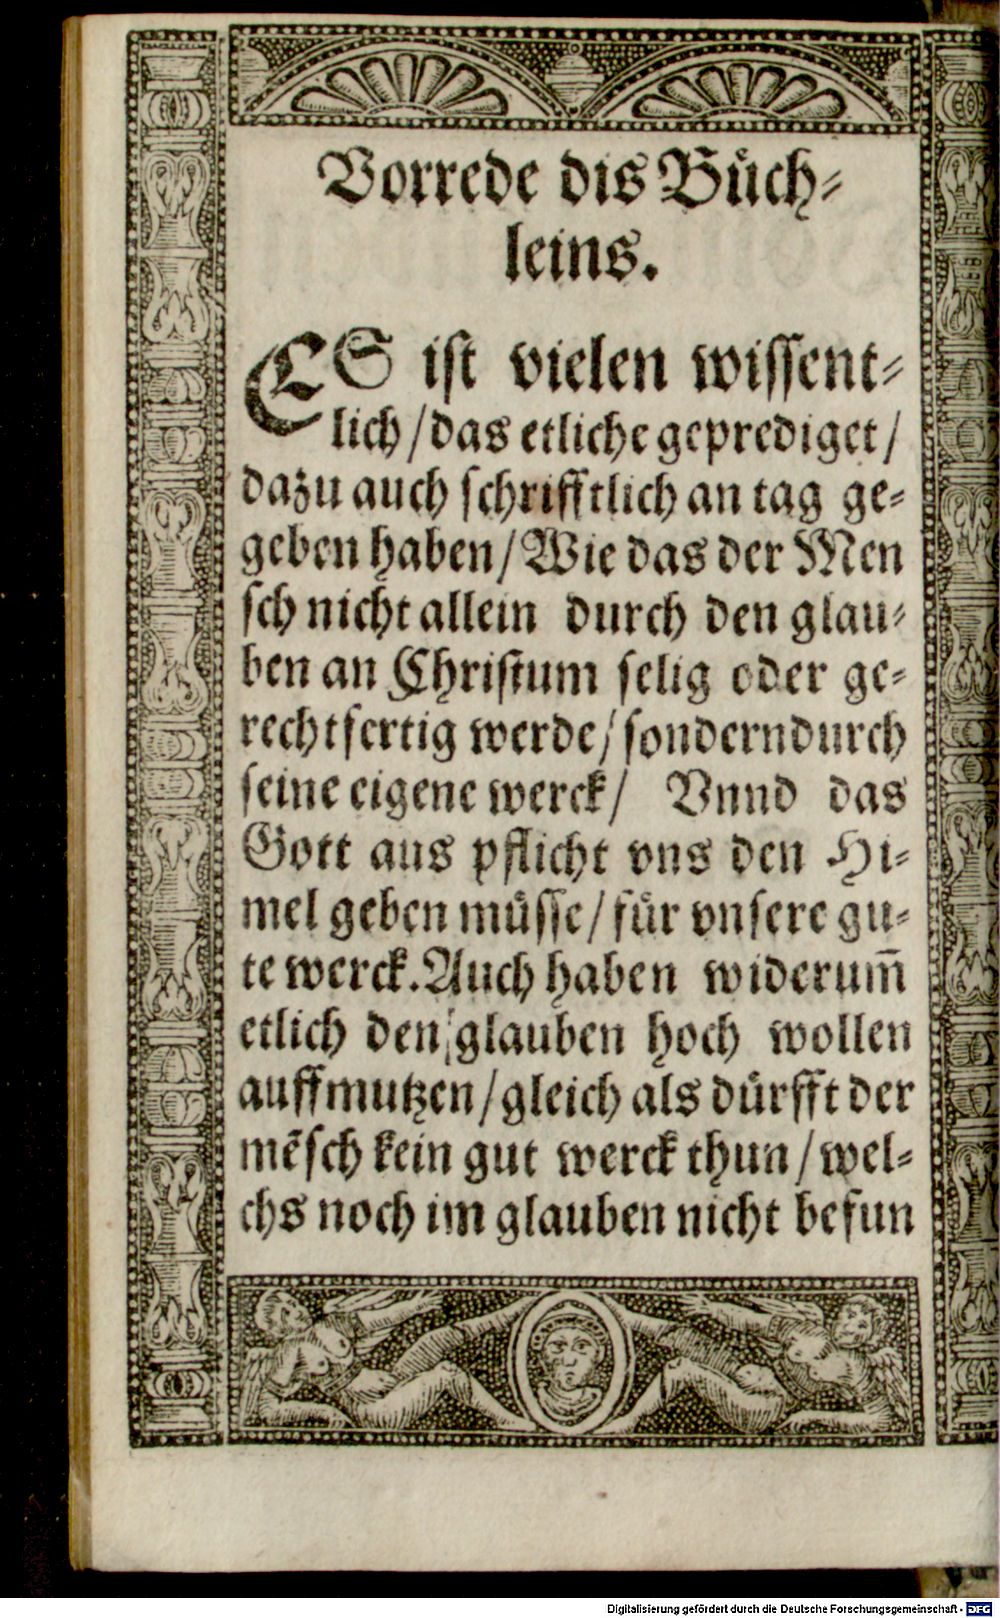 Vorrede dis Bůch⸗
leins.
ES ist vielen wissent⸗
lich/das etliche geprediget/
dazu auch schrifftlich an tag ge⸗
geben haben/Wie das der Men
sch nicht allein durch den glau⸗
ben an Christum selig oder ge⸗
rechtfertig werde/sonderndurch
seine eigene werck/ Vnnd das
Gott aus pflicht vns den Hi⸗
mel geben můsse/fůr vnsere gu⸗
te werck.Auch haben widerum̃
etlich den glauben hoch wollen
auffmutzen/gleich als důrfft der
mẽsch kein gut werck thun/wel⸗
chs noch im glauben nicht befun
Digitalisierung gefördert durch die Deutsche Forschungsgemeinschaft - DFG